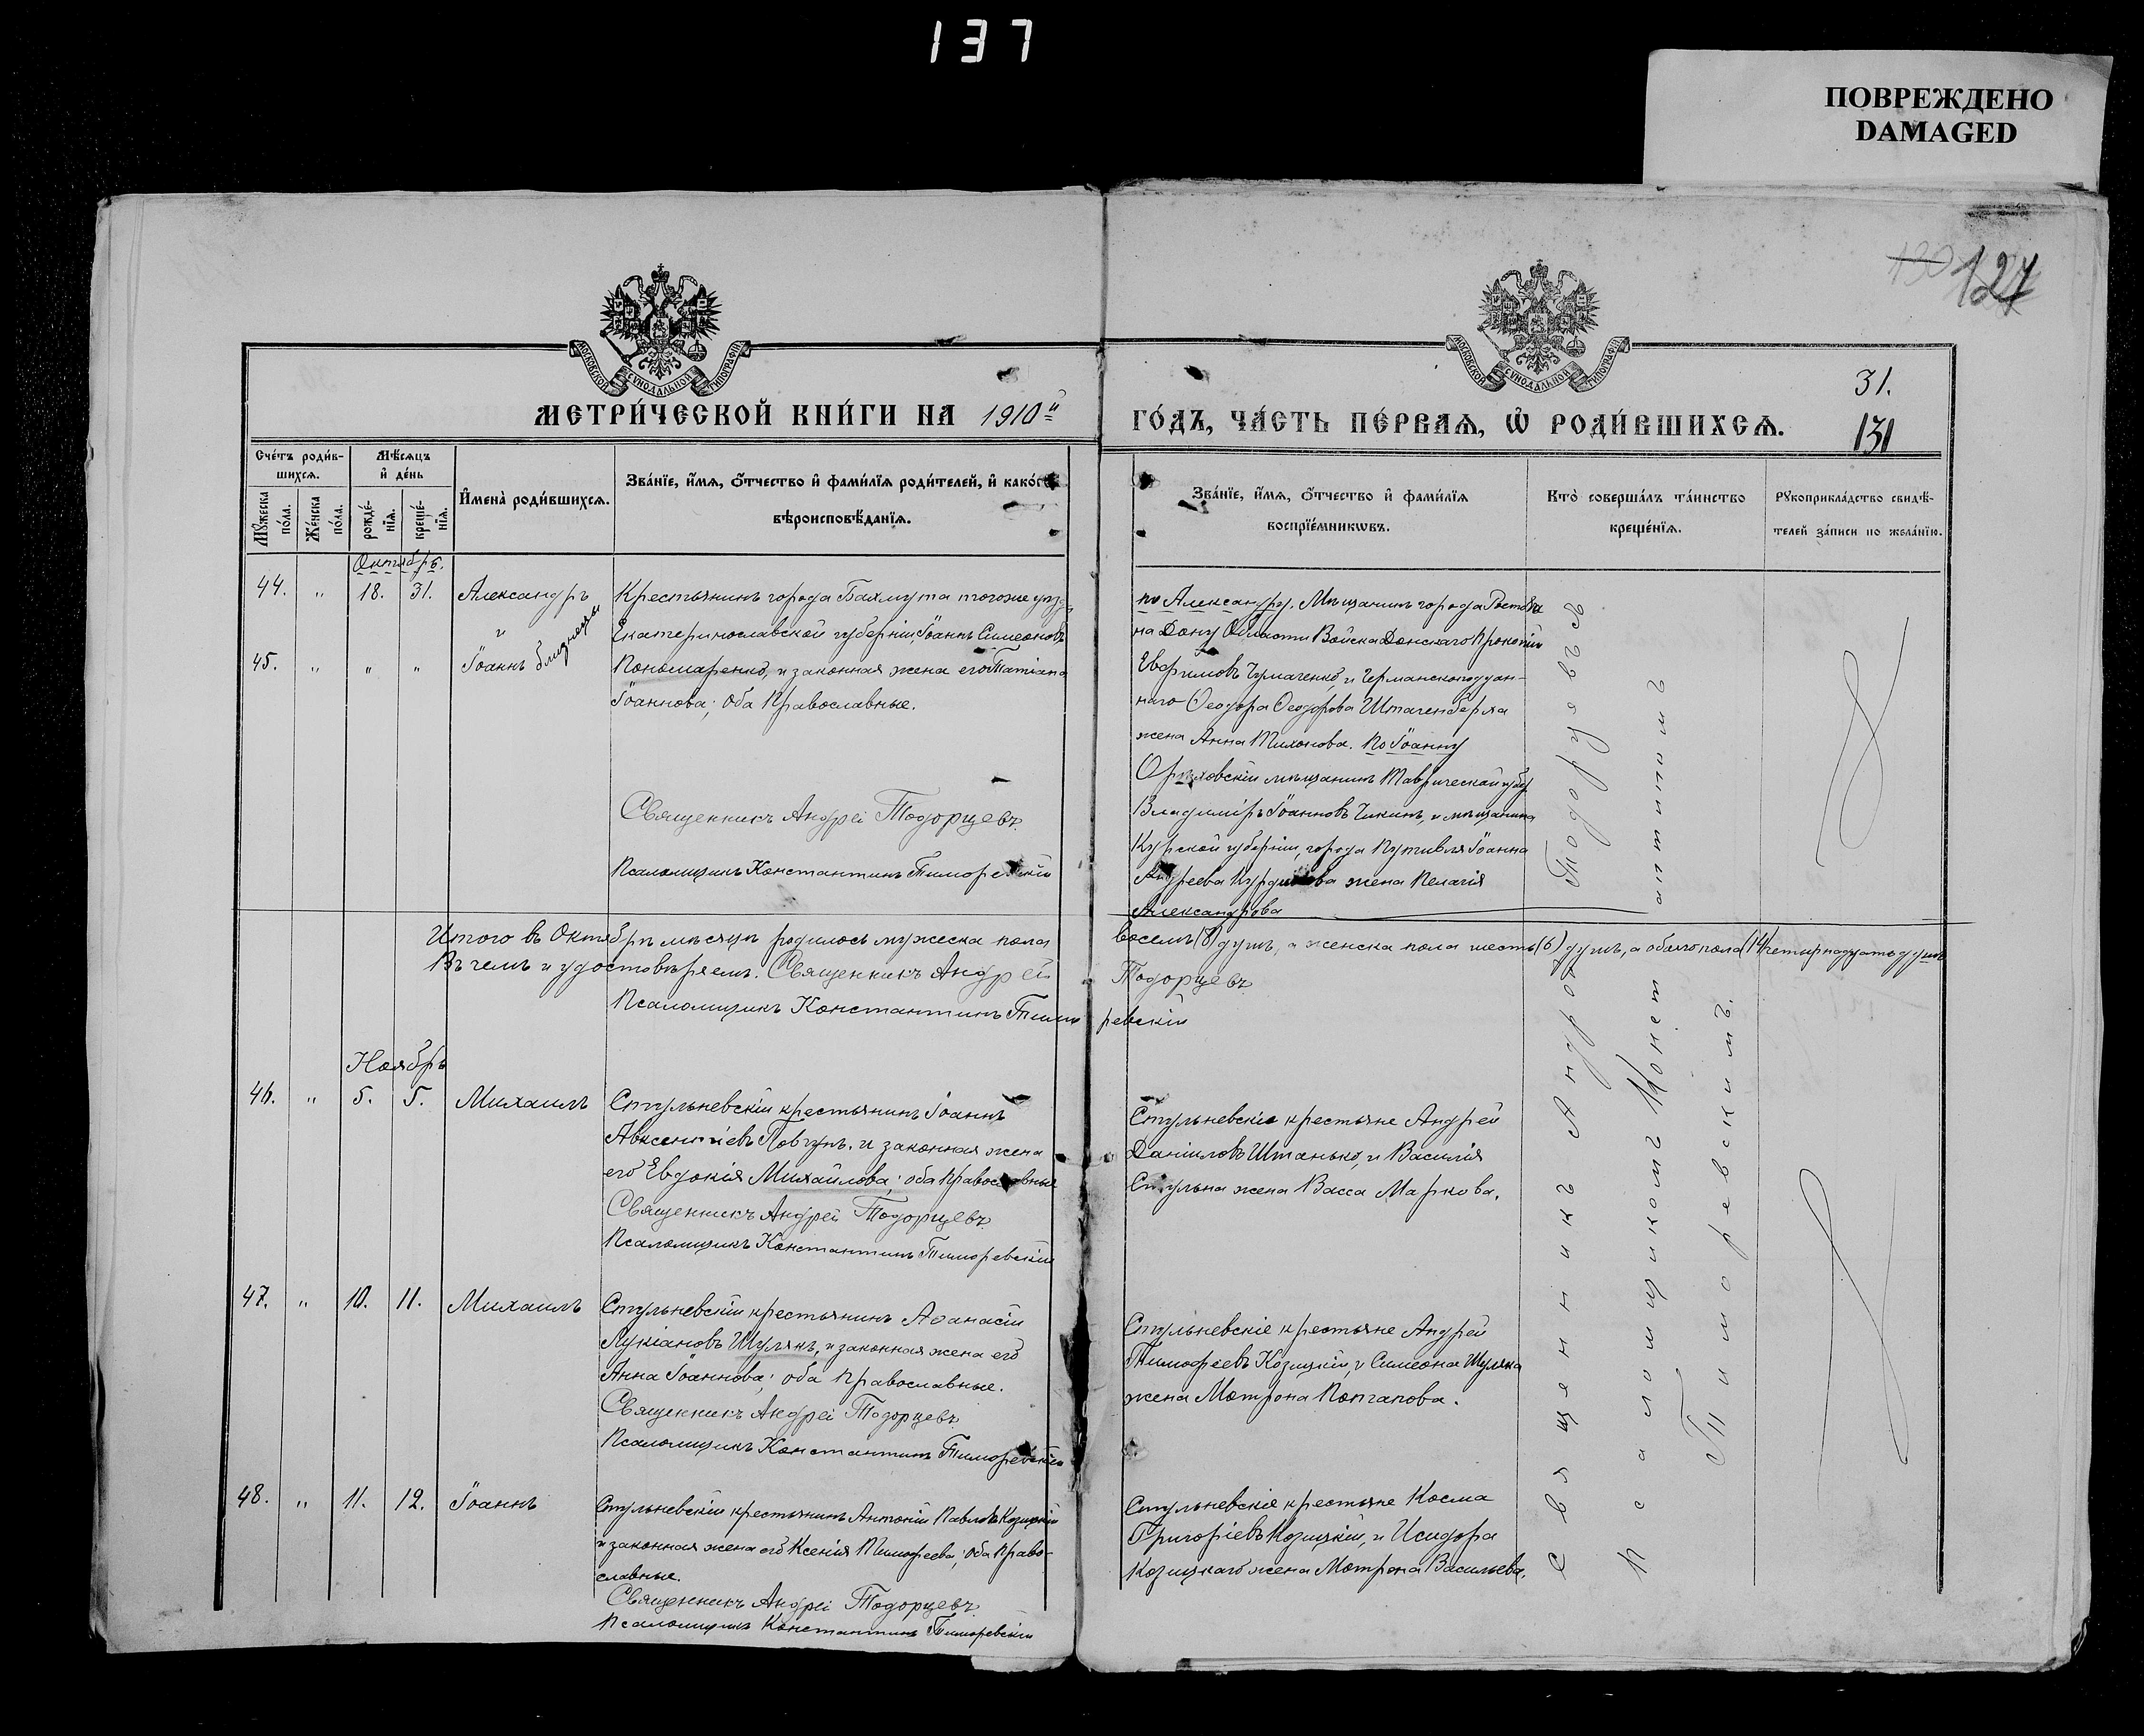 137
ПОВРЕЖДЕНО
DAMAGED
130 127
МОСКОВСКОЙ СѴНОДАЛЬНОЙ ТИПОГРАФІИ
МОСКОВСКОЙ СѴНОДАЛЬНОЙ ТИПОГРАФІИ
31.
МЕТРИ́ЧЕСКОЙ КНИ́ГИ НА 1910й
ГО́ДЪ, ЧА́СТЬ ПЕ́РВАѦ, Ѡ҆ РОДИ́ВШИХСѦ.
131
Сче́тъ роди́в-
шихсѧ.
Мѣ́сѧцъ
и҆ де́нь
Мꙋ́жеска
по́ла.
Же́нска
по́ла.
рожде́-
нїѧ.
креще́-
нїѧ.
И҆мена̀ роди́вшихсѧ.
Зва́нїе, и҆́мѧ, ѻ҆́тчество и҆ фами́лїѧ роди́телей, и҆ како́гѡ
вѣроисповѣ́данїѧ.
Зва́нїе, и҆́мѧ, ѻ҆́тчество и҆ фами́лїѧ
воспрїе́мникѡвъ.
Кто̀ соверша́лъ та́инство
креще́нїѧ.
Рꙋкоприкла́дство свидѣ́-
телей за́писи по жела́нїю.
Октябрь.
44. " 18. 31. Александръ
и
45. " " " Іоаннъ близнецы
Крестьянинъ города Бахмута тогоже уѣзда
Екатеринославской губерніи, Іоаннъ Симеоновъ
Пономаренко, и законная жена его Татіана
Іоаннова; оба Православные.
Священникъ Андрей Тодорцевъ.
Псаломщикъ Константинъ Тиморевскій
по Александру. Мѣщанинъ города Ростова
на Дону Области Войска Донскаго Прокопій
Евфимовъ Чумаченко, и Германскоподдан-
наго Ѳеодора Ѳеодорова Штагенберга
жена Анна Тихонова. По Іоанну
Орѣховскій мѣщанинъ Таврической губ.
Владиміръ Іоанновъ Чикинъ, и мѣщанина
Курской губерніи, города Путивля Іоанна
Андреева жена Пелагія
Александрова
Итого въ Октябрѣ мѣсяцѣ родилось мужеска пола восемь (8) душъ, а женска пола шесть (6) душъ, а обоего пола (14) четырнадцать душъ
Въ чемъ и удостовѣряемъ. Священникъ Андрей Тодорцевъ
Псаломщикъ Константинъ Тиморевскій
Ноябрь
46. " 5. 5. Михаилъ
Стульневскій крестьянинъ Іоаннъ
Авксентіевъ Товчунъ. и законная жена
его Евдокія Михайлова; оба Православные
Священникъ Андрей Тодорцевъ
Псаломщикъ Константинъ Тиморевскій
Стульневскіе крестьяне Андрей
Даніиловъ Штанько, и Василія
Стульна жена Васса Маркова.
47. " 10. 11. Михаилъ
Стульневскій крестьянинъ Аѳанасій
Лукіановъ Шулякъ, и законная жена его
Анна Іоаннова; оба Православные.
Священникъ Андрей Тодорцевъ
Псаломщикъ Константинъ Тиморевскій
Стульневскіе крестьяне Андрей
Тимофеевъ Козицкій, и Симеона Шуляка
жена Мотрона
48. " 11. 12. Іоаннъ
Стульневскій крестьянинъ Антоній Павловъ Козицкій
и законная жена его Ксенія Тимофеева; оба Право-
славные.
Священникъ Андрей Тодорцевъ
Псаломщикъ Константинъ Тиморевскій
Стульневскіе крестьяне Косма
Григоріевъ Козицкій, и Исидора
Козицкаго жена Мотрона Васильева.
Священникъ Андрей Тодорцевъ съ
Псаломщикомъ Константиномъ
Тиморевскимъ.